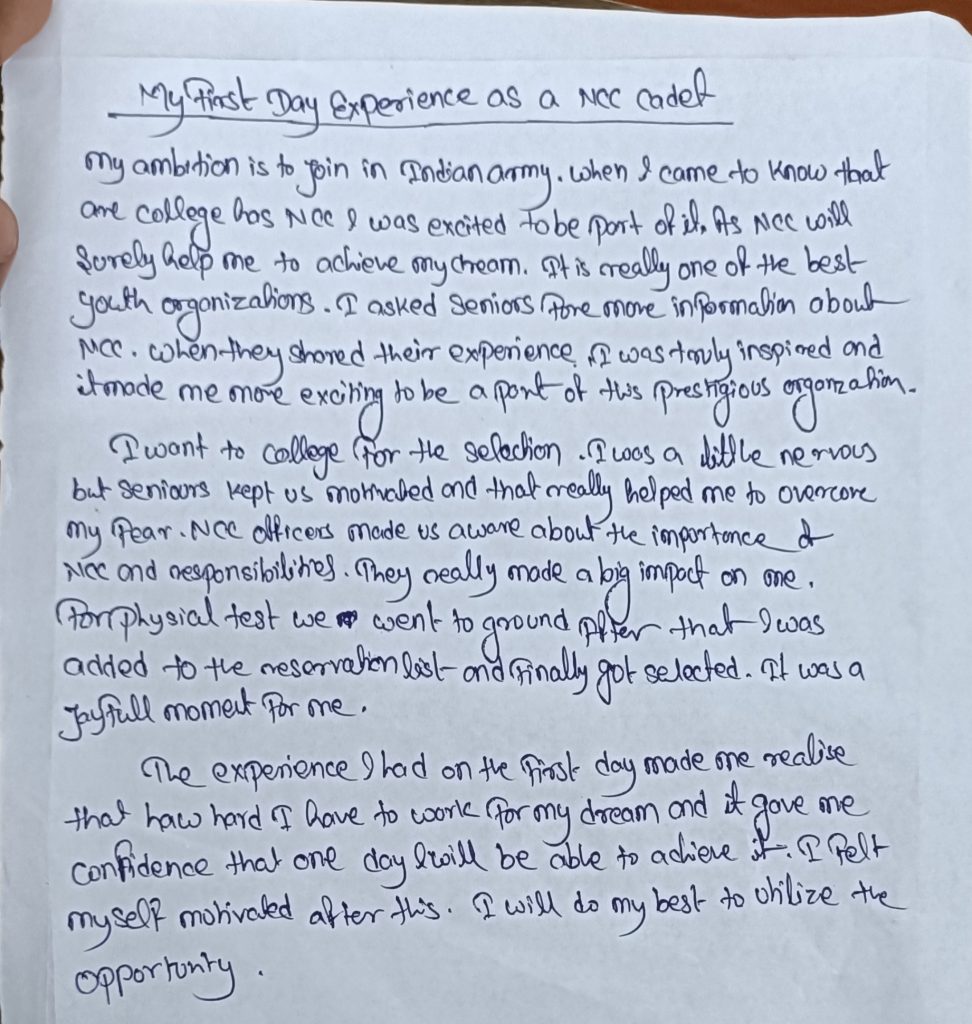 My First Day Experience as a NCC Cadet
My ambition is to join in Indian army. when I came to know that
are college has NCC I was excited to be part of it. As NCC will
Surely help me to achieve my dream. It is really one of the best
youth organizations. I asked Seniors fore more information about
NCC. when they shared their experience, I was truly inspired and
it made me more exciting to be a part of this prestigious organization.
I want to college for the selection. I was a little nervous
but seniours kept us motivated and that really helped me to overcore
my fear. NCC officers made us aware about the importance of
NCC and responsibilities. They really made a big impact on me.
For physical test we went to ground After that I was
added to the reservation list and finally got selected. It was a
Jayfull moment for me.
The experience I had on the first day made me realise
that haw hard I have to work for my dream and it gave me
confidence that one day I will be able to achieve it. I felt
myself motivated after this. I will do my best to utilize the
opportunity.